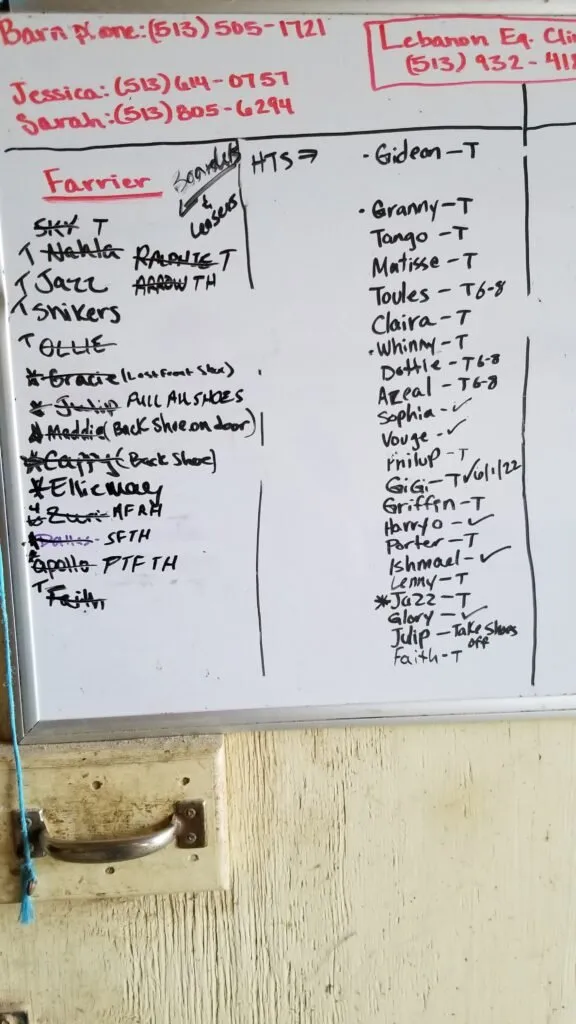 Barn phone: (513) 505-1721
Lebanon Eq. Clin
(513) 932-418
Jessica: (513) 614-0757
Sarah: (513) 805-6294
Farrier
Boarders
+
Leasers
SKY T
T Nahla RALPHIE T
T Jazz ARROW TH
T Snikers
T OLLIE
* Gracie (Lost front Shoe)
* Julip FULL All SHOES
Maddie (Back Shoe on door)
* Cappy (Back Shoe)
* Elliemay
Zuri MFAH
Dallas - SFTH
Apollo FTF TH
T Faith
HTS ⇒
· Gideon - T
· Granny - T
Tango - T
Matisse - T
Toules - T 6-8
Claira - T
· Whinny - T
Dottle - T 6-8
Azeal - T 6-8
Sophia - ✓
Vouge - ✓
Philup - T
GiGi - T ✓ 6/1/22
Griffin - T
Harryo - ✓
Porter - T
Ishmael - ✓
Lenny - T
* Jazz - T
Glory - ✓
Julip - Take Shoes
off
Faith - T